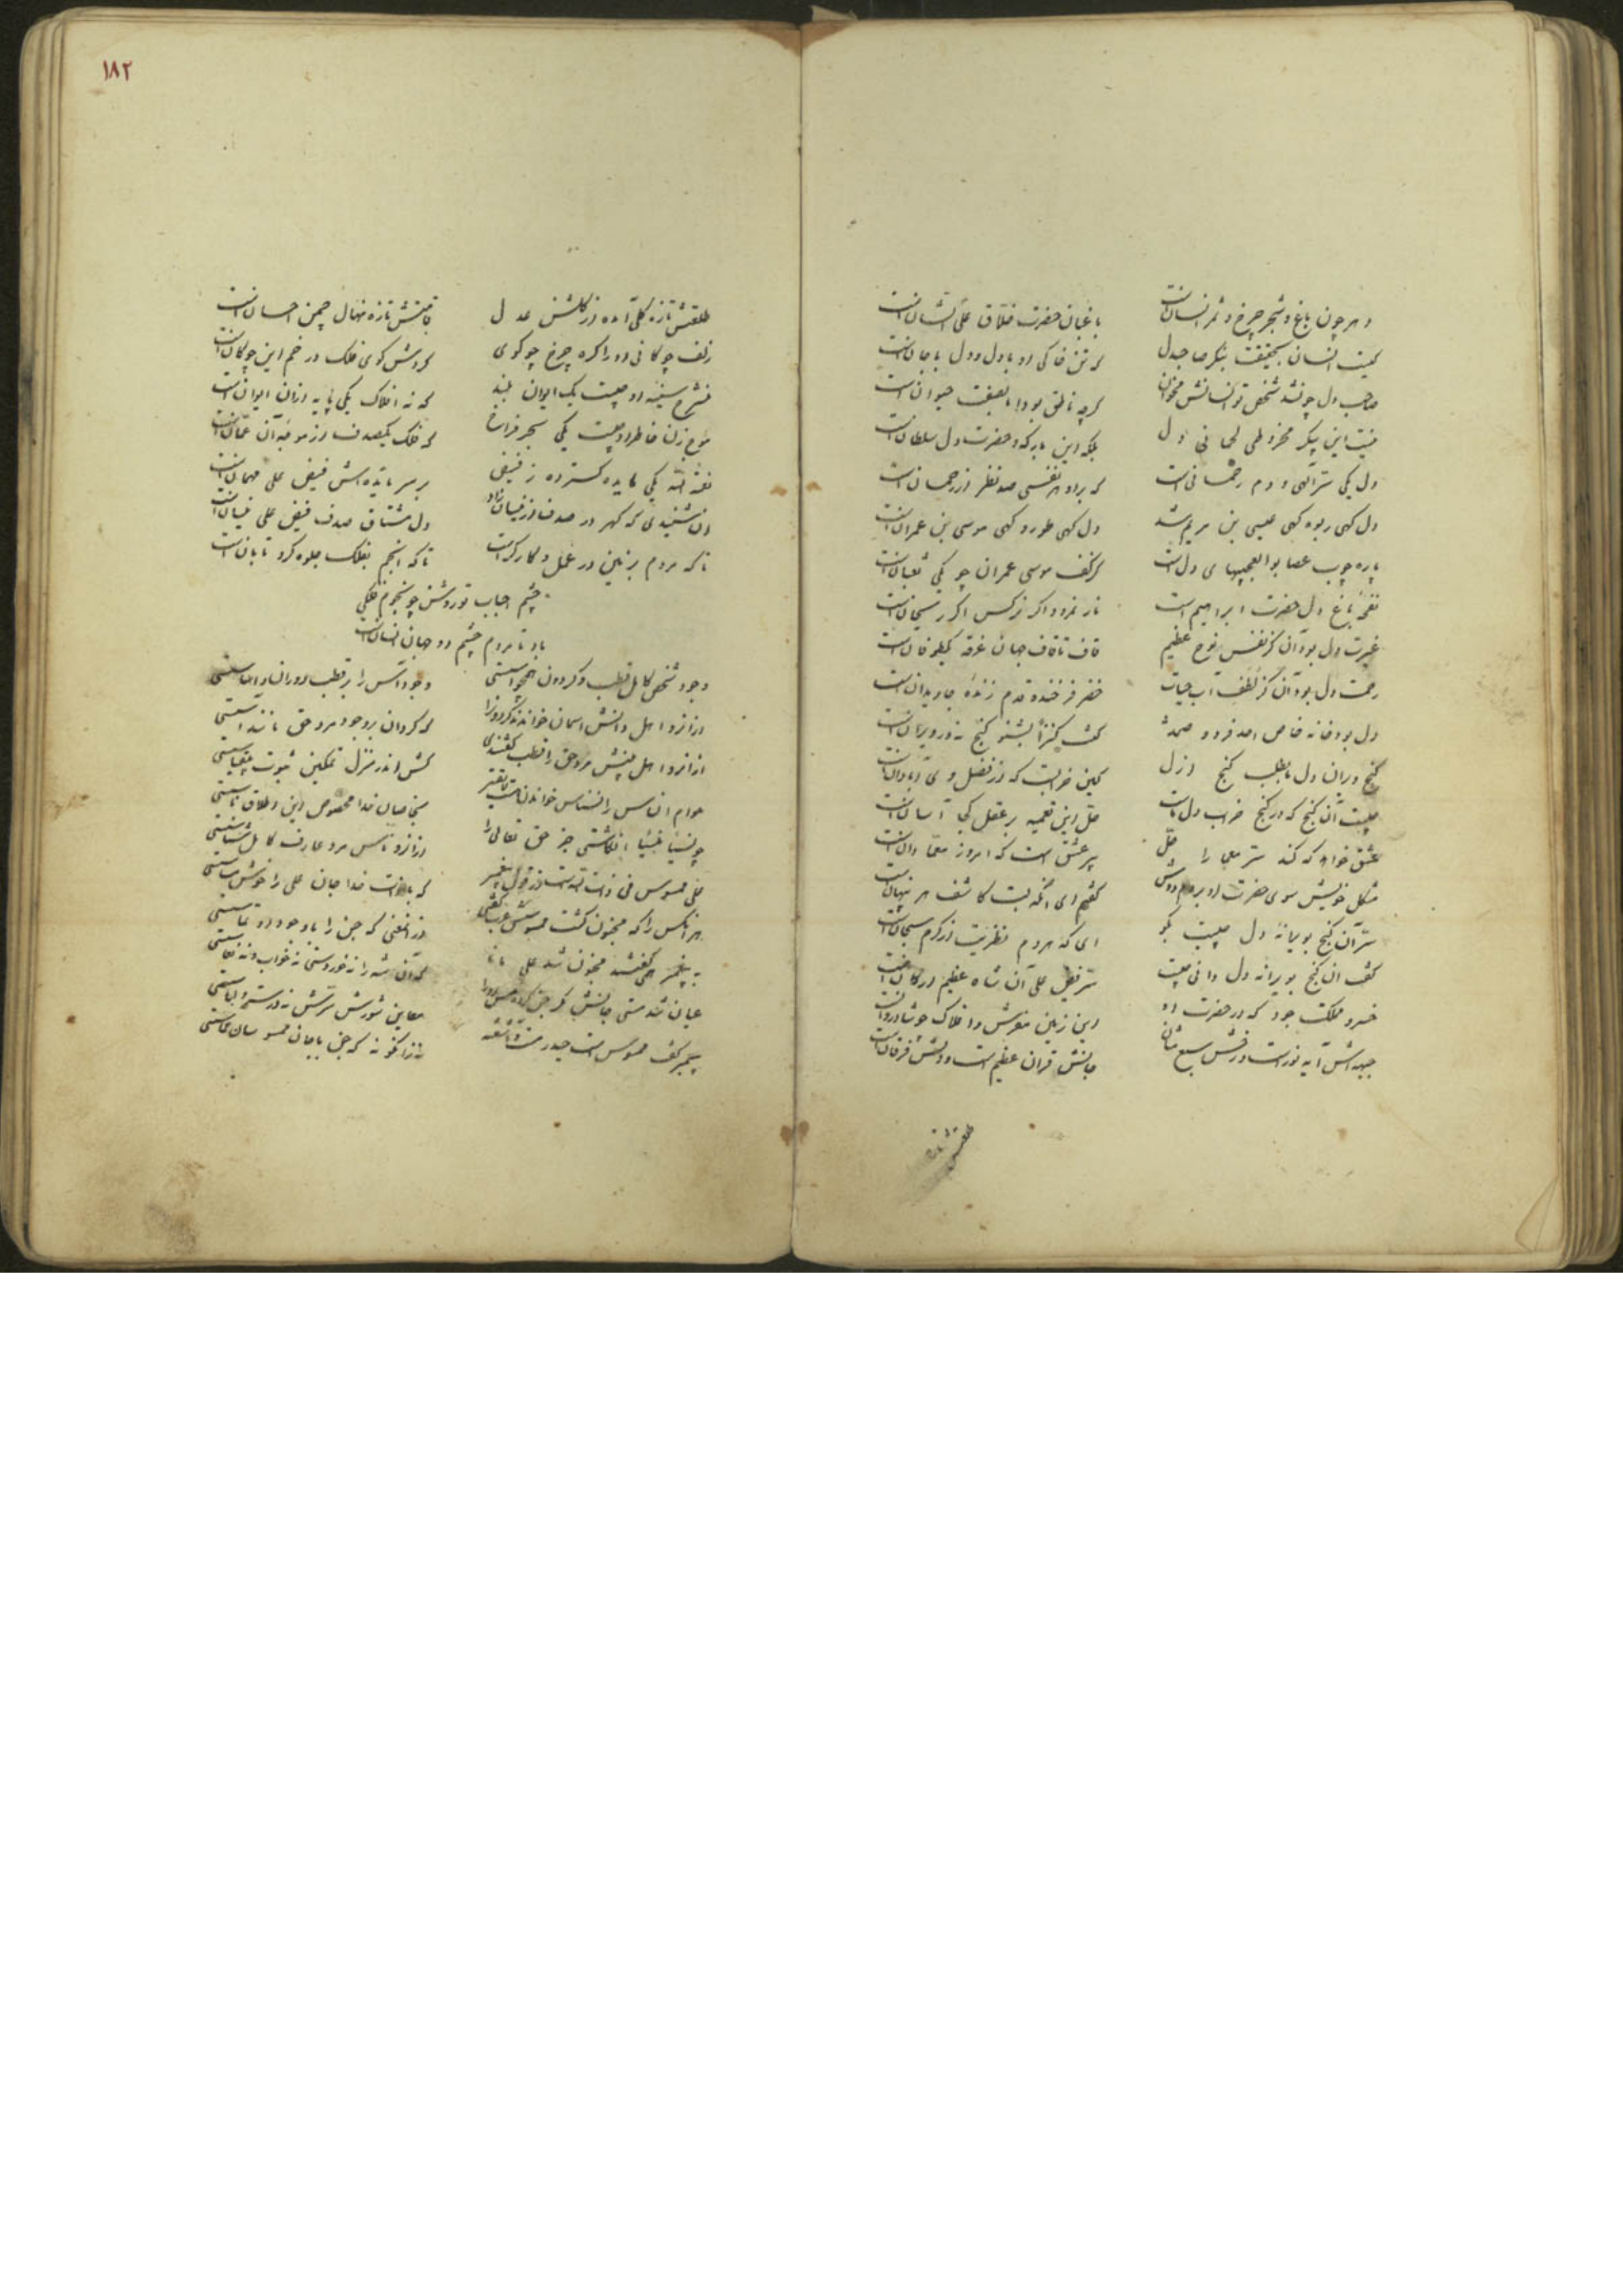 دهر چون باغ و شجر چرخ و ثمر انسانست
باغبان حضرت خلاق علی الشانست
کیست انسان بحقیقت بنگر صاحبدل
که تن خاکی او با دل و دل با جانست
صاحب دل چو نشد شخص تو انسانش مخوان
گرچه ناطق بود اما بحقیقت حیوانست
نیست این پیکر مخروطی لحمانی دل
بلکه این بارگه و حضرت دل سلطانست
دل یکی سر الهی و دم رحمانی است
که برو هر نفسی صد نظر از رحمانست
دل گهی ربوه گهی عیسی بن مریم شد
دل گهی طور و گهی موسی بن عمرانست
پاره چوب عصا بوالعجبیهای دل است
در کف موسی عمران چو یکی ثعبانست
نفحه باغ دل حضرت ابراهیم است
نار نمرود اگر نرگس اگر ریحانست
غیرت دل بود آن کز نفس نوح عظیم
قاف تا قاف جهان غرقه یکطوفانست
رحمت دل بود آن کز لطف آب حیات
خضر فرخنده قدم زنده جاویدانست
دل بود خانه خاص احد فرد و صمد
کنت کنزا بشنو گنج نه در ویرانست
گنج ویران دل ما بطلب گنج ازل
کین خرابیست که از فضل وی آبادانست
چیست آن گنج که در گنج خراب دل ماست
حل این تعمیه بر عقل کجا آسانست
عشق خواهد که کند سر معما را حل
پیر عشق است که امروز معما دانست
مشکل خویش سوی حضرت او بردم دوش
گفتم ای آنکه لبت کاشف هر پنهانست
سر آن گنج بویرانه دل چیست بگو
ای که هر دم نظریت از کرم سبحانست
گفت ان گنج بویرانه دل دانی چیست
سر فیض علی آن شاه عظیم ارکانست
خسرو مملکت جود که در حضرت او
این زمین مفرش و افلاک چو شادروانست
جبهه اش آیه نور است و رخش سبع مثان
جانش قران عظیم است و دلش فرقانست
طلعتش تازه
۱۸۲
طلعتش تازه گلی آمده از گلشن عدل
قامتش تازه نهال چمن احسانست
زلف چوگانی او را کره چرخ چو گوی
گردش گوی فلک در خم این چوگانست
منشرح سینه او چیست یک ایوان بلند
که نه افلاک یکی پایه ازان ایوانست
موج زن خاطر او چیست یکی بحر فراخ
که فلک یکصدف از موجه آن عمانست
نعمة الله یکی مایده گسترده ز فیض
بر سر مایده اش فیض علی مهمانست
ان شنیدی که گهر در صدف از نیسان زاد
دل مشتاق صدف فیض علی نیسانست
تا که مردم بزمین در عمل و کارگر است
تا که انجم بفلک جلوه گر و تابانست
چشم احباب تو روشن چو نجوم فلکی
باد تا مردم چشم دو جهان انسانست
وجود شخص کامل قطب و گردون همچو استی
وجود آسش را بر قطب دوران دایماستی
ازانرو اهل دانش اسمان خوانند گردونرا
که گردان بر وجود مرد حق مانند آستی
ازانرو اهل بینش مرد حق را قطب گفتندی
کش اندر منزل تمکین ثبوت
عوام الناس را نسناس خواندن
بخاصان خدا مخصوص این اطلاق ناستی
چو نسیا منسیا انگاشتی جز حق تعالی را
ازانرو ناس مرد عارف کامل شناستی
علی ممسوس فی ذات الله است از قول پیغمبر
که با ذات خدا جان علی را خوش مساستی
هر آنکس را که مجنون گشت ممسوسش عرب گفتی
ازانمعنی که جن را با وجود او تماستی
به پیغمبر همی گفتند مجنون شد علی مانا
که آن شه را نه خوردستی نه خواب و نه نعاستی
عیان شد مستی جانش
معاین شورش سرش نه در ستر و لباستی
پیمبر گفت ممسوس است حیدر
نه زانگونه که جن با جان ممسوسان مماستی